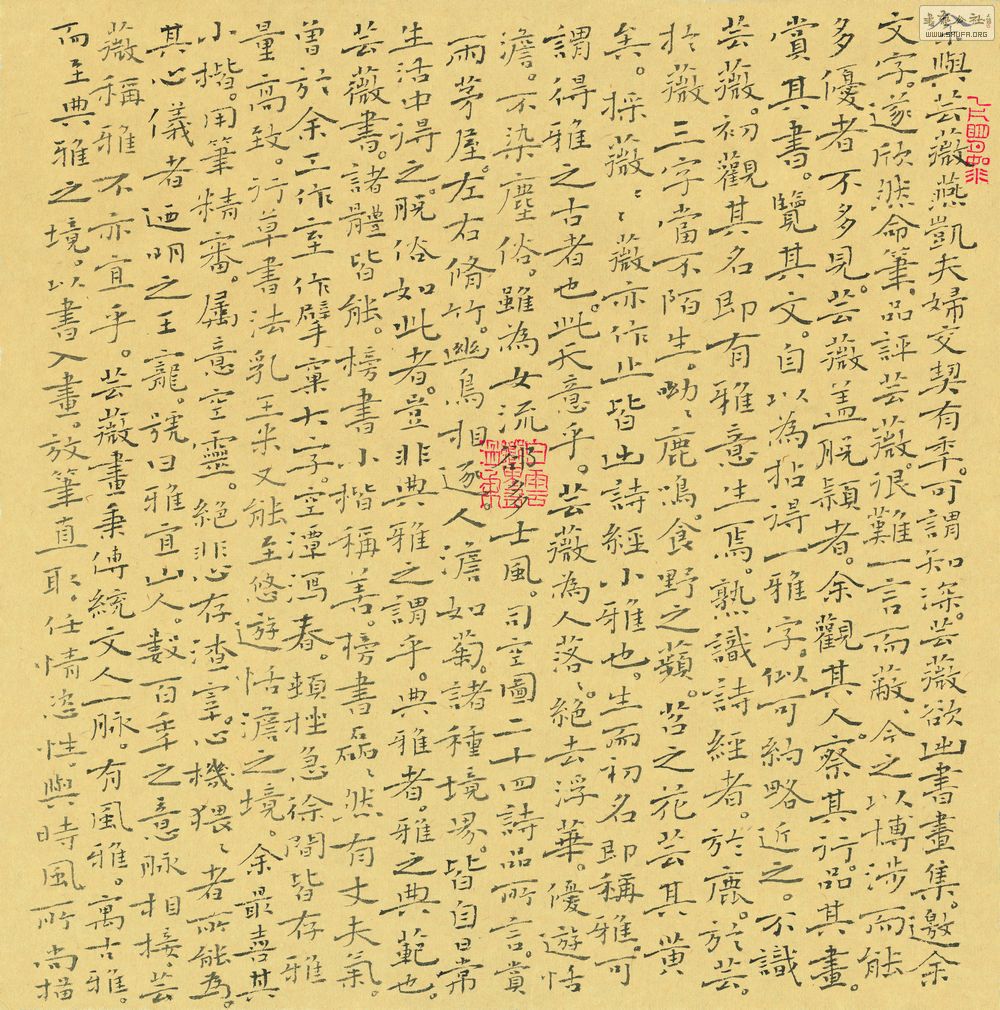 余與芸薇燕凱夫婦交契有季。可謂知深。芸薇欲出書畫集。邀余
文字。遂欣然命筆。品評芸薇。很難一言而蔽。今之以博涉而能
多優者不多見。芸薇盖脫穎者。余觀其人。察其行。品其畫。
賞其書。覽其文。自以為拈得一雅字。似可約略近之。不識
芸薇。初觀其名即有雅意生焉。熟識詩經者。於鹿。於芸。
於薇三字當不陌生。呦〻鹿鳴。食野之蘋。苕之花。芸其黃
矣。採薇〻薇亦作止。皆出詩經小雅也。生而初名即稱雅。可
謂得雅之古者也。此天意乎。芸薇為人落〻。絕去浮華。優遊恬
澹。不染塵俗。雖為女流。卻多士風。司空圖二十四詩品所言。賞
雨茅屋。左右脩竹。幽鳥相逐。人澹如菊。諸種境界。皆自日常
生活中得之。脫俗如此者。豈非典雅之謂乎。典雅者。雅之典範也。
芸薇書。諸體皆能。榜書小楷稱善。榜書磊〻然有丈夫氣。
曾於余工作室作擘窠大字。空潭瀉春。頓挫急徐間皆存雅
量高致。行草書法乳王米又能至悠遊恬澹之境。余最喜其
小楷。用筆精審。屬意空靈。絕非心存渣宰。心機猥〻者所能為。
其心儀者迺明之王寵。號曰雅宜山人。數百季之意脉相接。芸
薇稱雅不亦宜乎。芸薇畫秉傳統文人一脉。有風雅。寓古雅。
而至典雅之境。以書入畫。放筆直取。任情恣性。與時風所尚描
書法公社
WWW.SHUFA.ORG